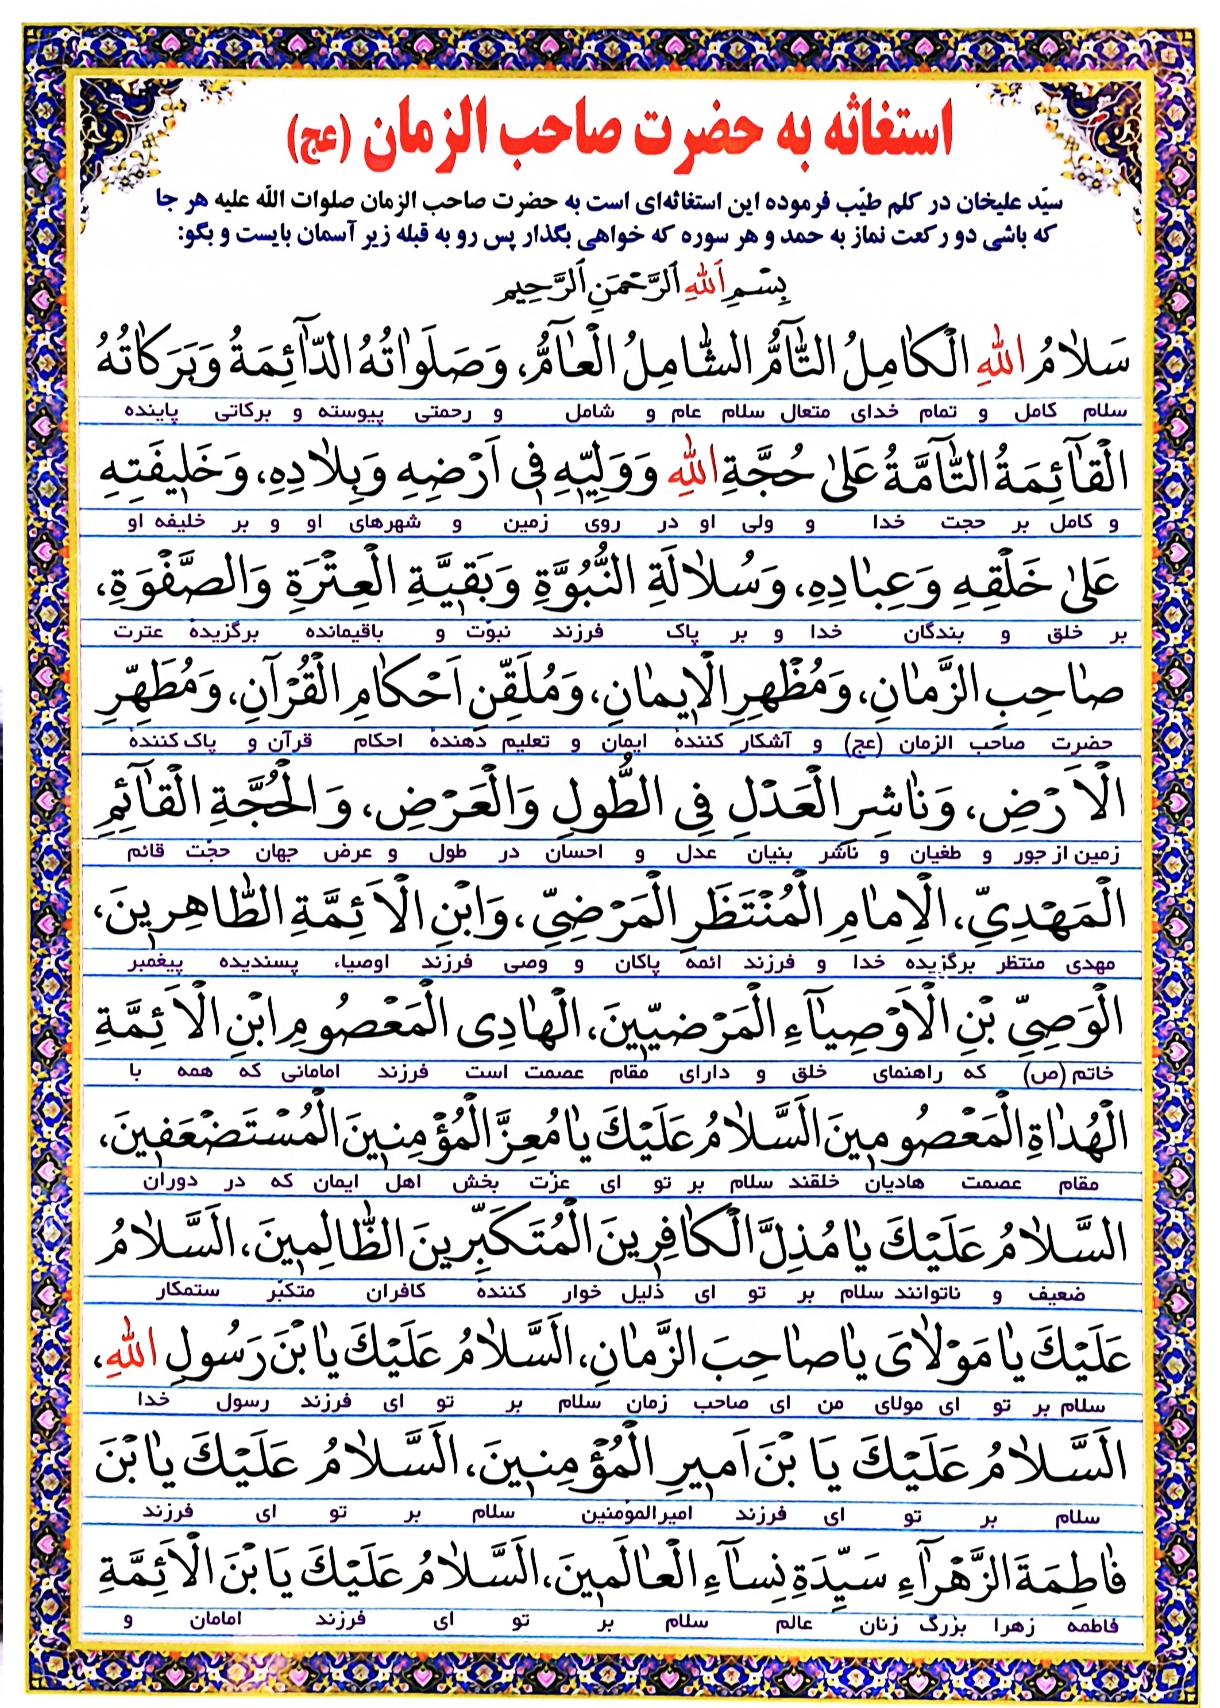 استغاثه به حضرت صاحب الزمان (عج)
سیّد علیخان در کلم طیّب فرموده این استغاثه‌ای است به حضرت صاحب الزمان صلوات اللّه علیه هر جا
که باشی دو رکعت نماز به حمد و هر سوره که خواهی بگذار پس رو به قبله زیر آسمان بایست و بگو:
بِسْمِ اللهِ الرَّحْمَنِ الرَّحِيمِ
سَلَامُ اللهِ الْكَامِلُ التَّآمُّ الشَّامِلُ الْعَآمُّ، وَصَلَوَاتُهُ الدَّآئِمَةُ وَبَرَكَاتُهُ
سلام کامل و تمام خدای متعال سلام عام و شامل و رحمتی پیوسته و برکاتی پاینده
الْقَآئِمَةُ التَّآمَّةُ عَلىٰ حُجَّةِ اللهِ وَوَلِيِّهِ فِى اَرْضِهِ وَبِلَادِهِ، وَخَلِيفَتِهِ
و کامل بر حجت خدا و ولی او در روی زمین و شهرهای او و بر خلیفه او
عَلىٰ خَلْقِهِ وَعِبَادِهِ، وَسُلَالَةِ النُّبُوَّةِ وَبَقِيَّةِ الْعِتْرَةِ وَالصَّفْوَةِ،
بر خلق و بندگان خدا و بر پاک فرزند نبوّت و باقیمانده برگزیدهٔ عترت
صَاحِبِ الزَّمَانِ، وَمُظْهِرِ الْإِيمَانِ، وَمُلَقِّنِ اَحْكَامِ الْقُرْآنِ، وَمُطَهِّرِ
حضرت صاحب الزمان (عج) و آشکار کنندهٔ ایمان و تعلیم دهندهٔ احکام قرآن و پاک کنندهٔ
الْاَرْضِ، وَنَاشِرِ الْعَدْلِ فِى الطُّولِ وَالْعَرْضِ، وَالْحُجَّةِ الْقَآئِمِ
زمین از جور و طغیان و ناشر بنیان عدل و احسان در طول و عرض جهان حجّت قائم
الْمَهْدِىِّ، الْاِمَامِ الْمُنْتَظَرِ الْمَرْضِىِّ، وَابْنِ الْاَئِمَّةِ الطَّاهِرِينَ،
مهدی منتظر برگزیده خدا و فرزند ائمهٔ پاکان و وصی فرزند اوصیاء، پسندیده پیغمبر
الْوَصِىِّ بْنِ الْاَوْصِيَآءِ الْمَرْضِيِّينَ، الْهَادِى الْمَعْصُومِ ابْنِ الْاَئِمَّةِ
خاتم (ص) که راهنمای خلق و دارای مقام عصمت است فرزند امامانی که همه با
الْهُدَاةِ الْمَعْصُومِينَ اَلسَّلَامُ عَلَيْكَ يَا مُعِزَّ الْمُؤْمِنِينَ الْمُسْتَضْعَفِينَ،
مقام عصمت هادیان خلقند سلام بر تو ای عزّت بخش اهل ایمان که در دوران
السَّلَامُ عَلَيْكَ يَا مُذِلَّ الْكَافِرِينَ الْمُتَكَبِّرِينَ الظَّالِمِينَ، اَلسَّلَامُ
ضعیف و ناتوانند سلام بر تو ای ذلیل خوار کنندهٔ کافران متکبّر ستمکار
عَلَيْكَ يَا مَوْلَاىَ يَا صَاحِبَ الزَّمَانِ، اَلسَّلَامُ عَلَيْكَ يَا بْنَ رَسُولِ اللهِ،
سلام بر تو ای مولای من ای صاحب زمان سلام بر تو ای فرزند رسول خدا
اَلسَّلَامُ عَلَيْكَ يَا بْنَ اَمِيرِ الْمُؤْمِنِينَ، اَلسَّلَامُ عَلَيْكَ يَا بْنَ
سلام بر تو ای فرزند امیرالمؤمنین سلام بر تو ای فرزند
فَاطِمَةَ الزَّهْرَآءِ سَيِّدَةِ نِسَآءِ الْعَالَمِينَ، اَلسَّلَامُ عَلَيْكَ يَا بْنَ الْاَئِمَّةِ
فاطمه زهرا بزرگ زنان عالم سلام بر تو ای فرزند امامان و